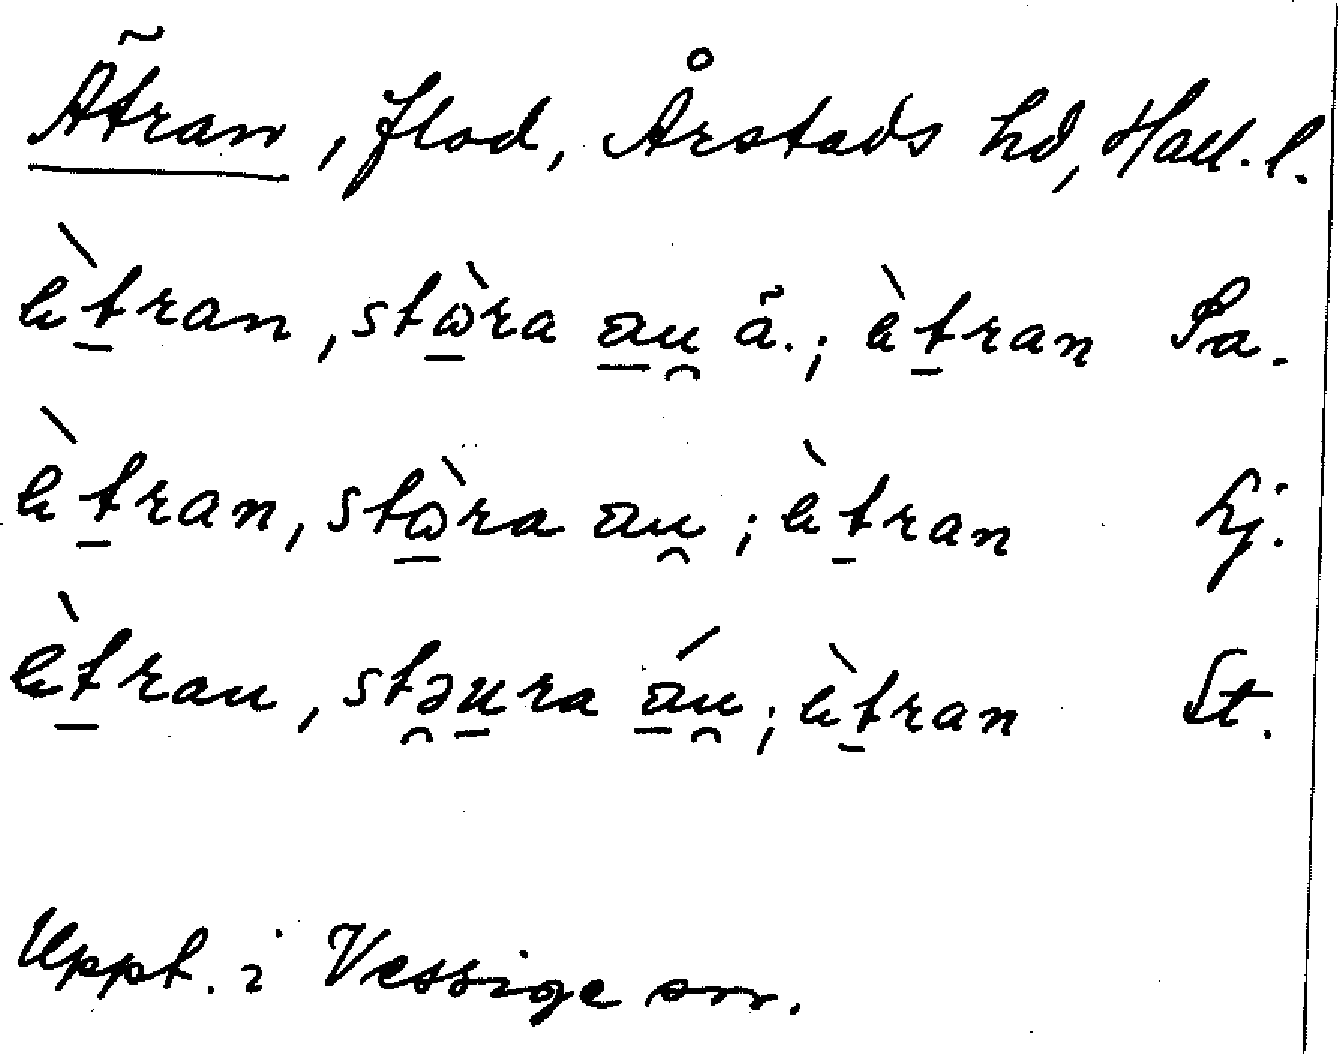 Ätran, flod, Årstads hd, Hall. l.
ὲt̠ran, stὼ̠ra a̠u̯ ä.; ὲt̠ran Sa.
ὲt̠ran, stὼ̠ra au̯; ὲt̠ran Lj.
ὲt̠ran, stə̯u̠ra á̠u̯; ὲt̠ran St.
Uppt. i Vessige sn.